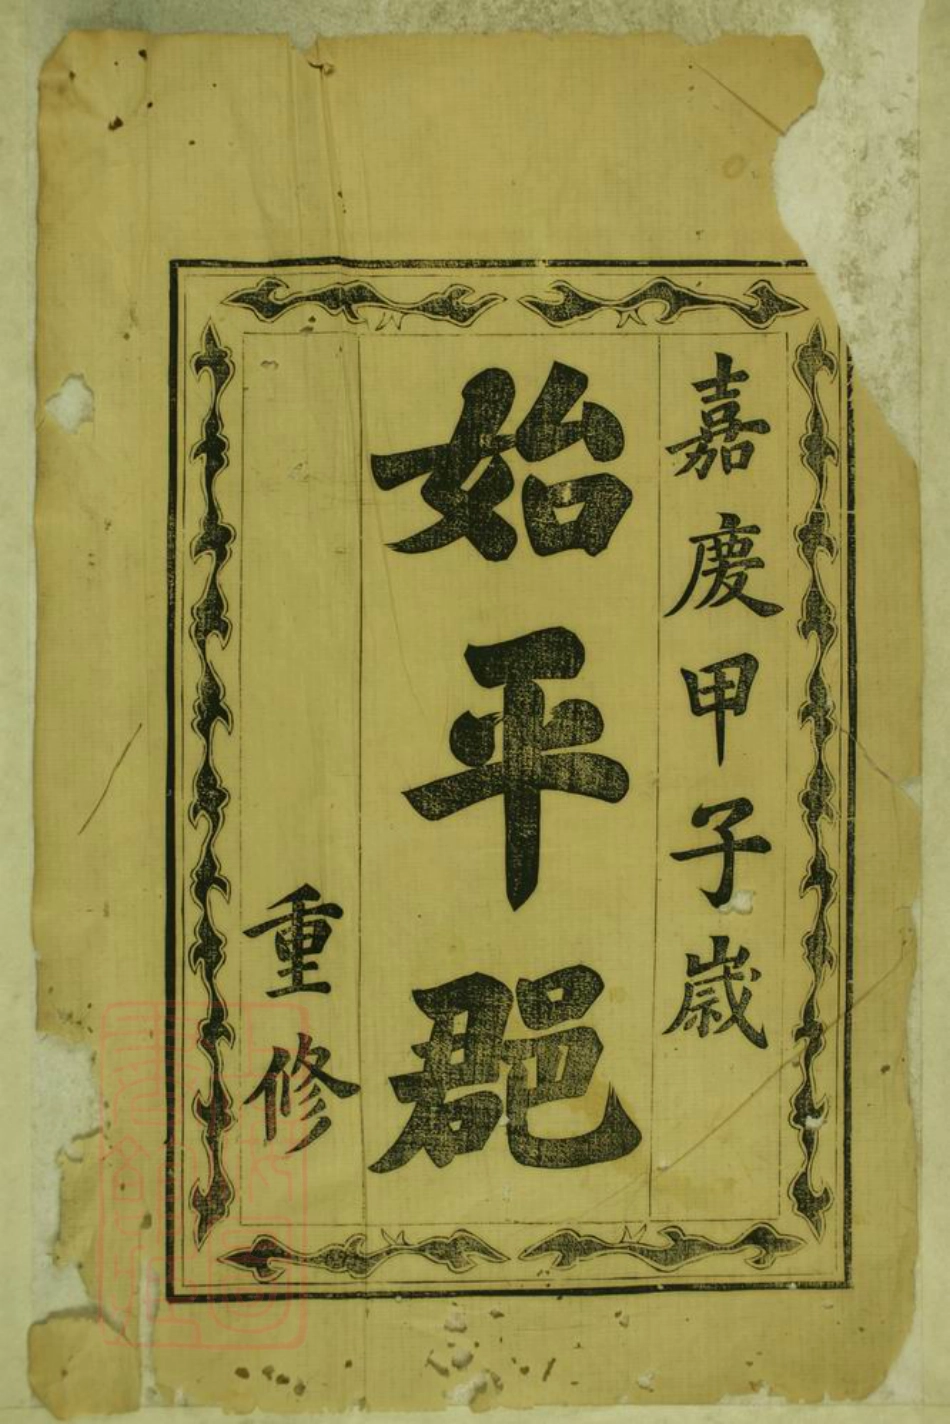 嘉慶甲子歲
始平郡
重修